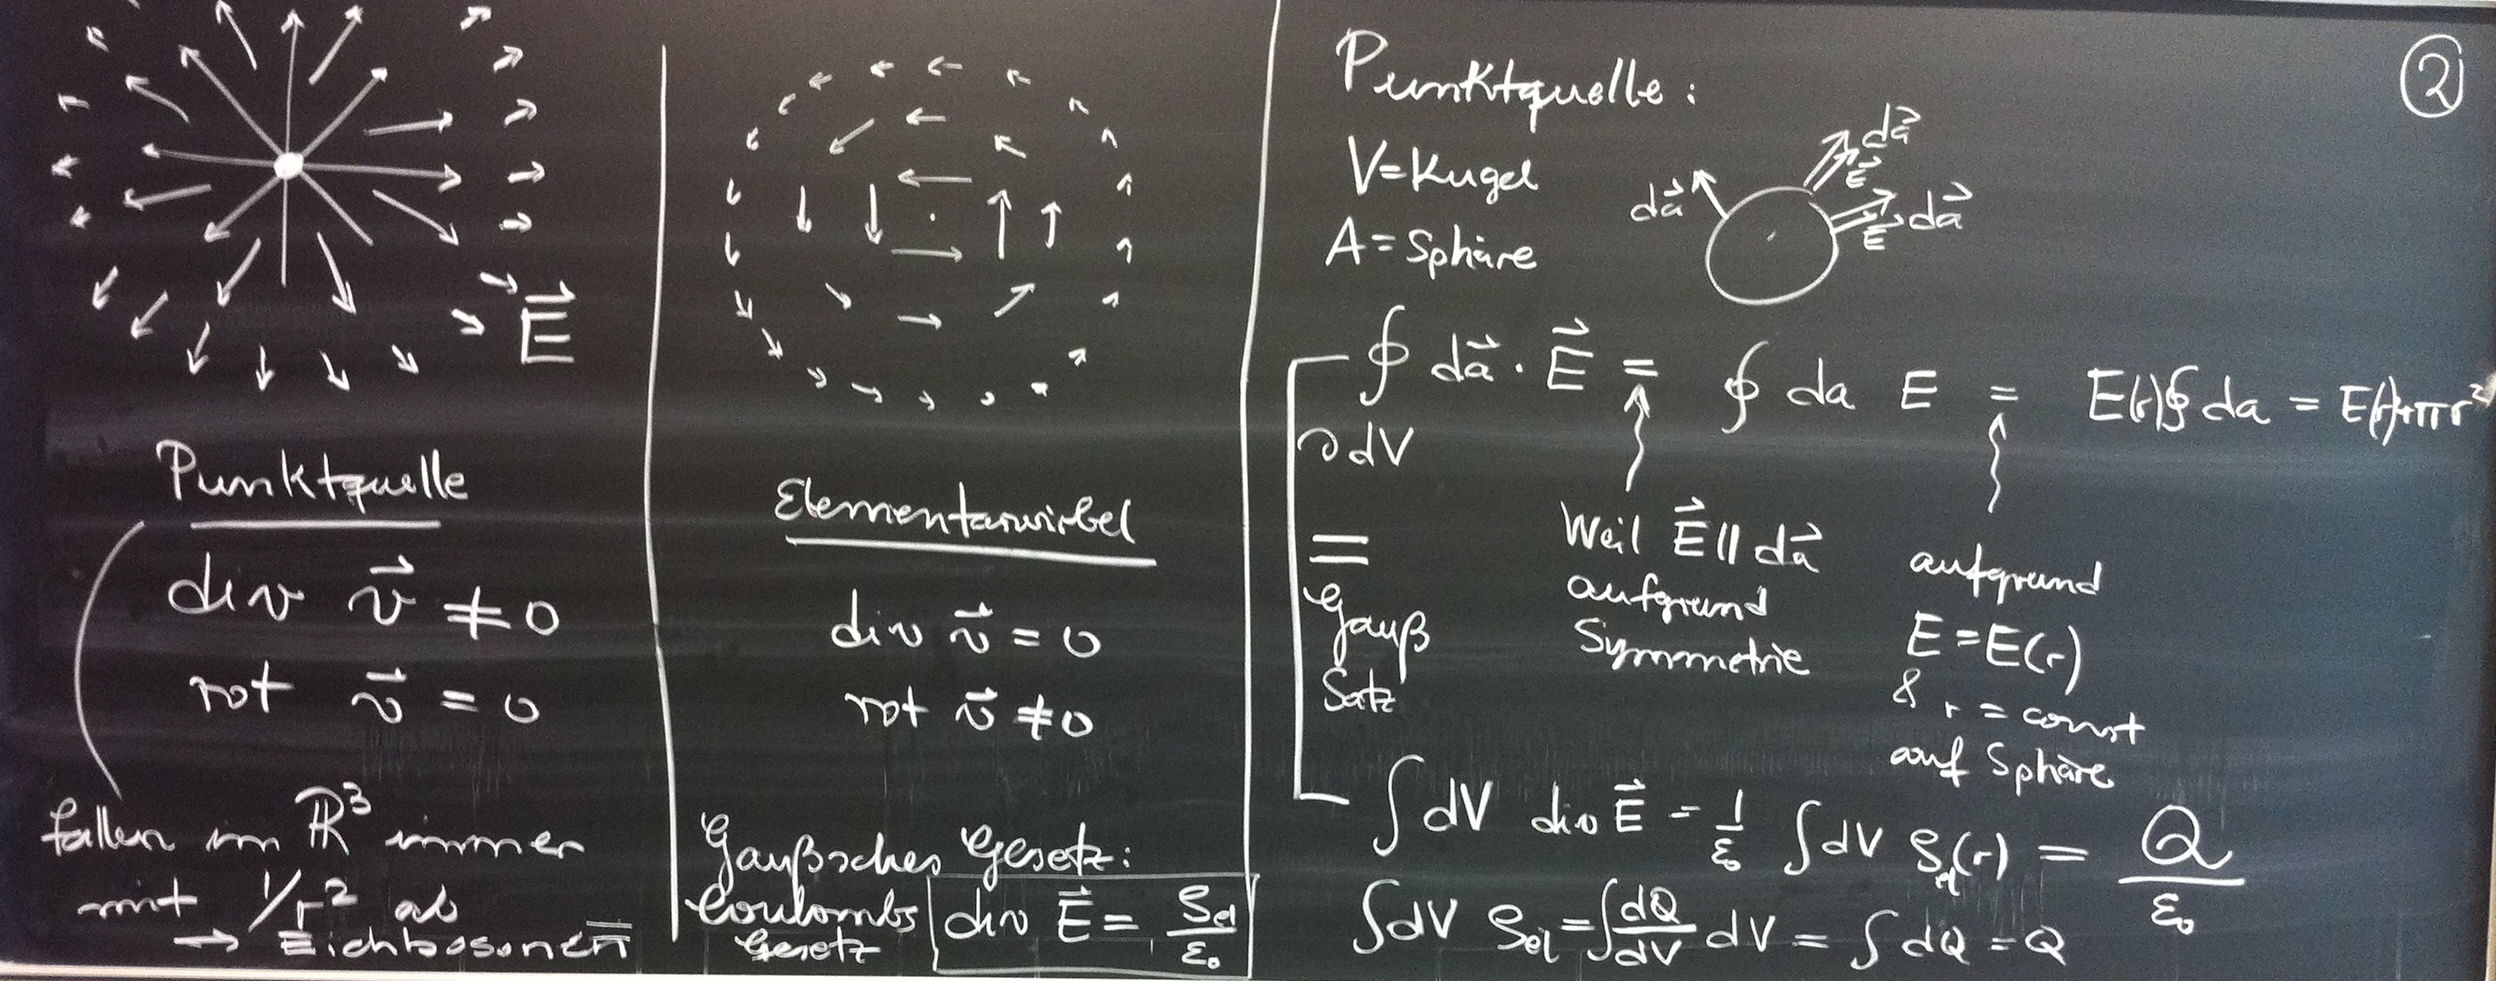 E⃗
Punktquelle
div v⃗ ≠ 0
rot v⃗ = 0
fallen im ℝ³ immer
mit 1/r² ab
→ Eichbosonen
Elementarwirbel
div v⃗ = 0
rot v⃗ ≠ 0
Gaußsches Gesetz:
Coulombs
Gesetz
div E⃗ = ρel/ε₀
②
Punktquelle:
V=Kugel
A=Sphäre
da⃗
da⃗
E⃗
da⃗
E⃗
∮ da⃗ · E⃗ = ∮ da E = E(r)∮ da = E(r)4πr²
∂dV
=
Gauß
Satz
Weil E⃗ ∥ da⃗
aufgrund
Symmetrie
aufgrund
E = E(r)
& r = const
auf Sphäre
∫ dV div E⃗ = 1/ε₀ ∫ dV ρel(r) = Q/ε₀
∫dV ρel = ∫ dQ/dV dV = ∫ dQ = Q